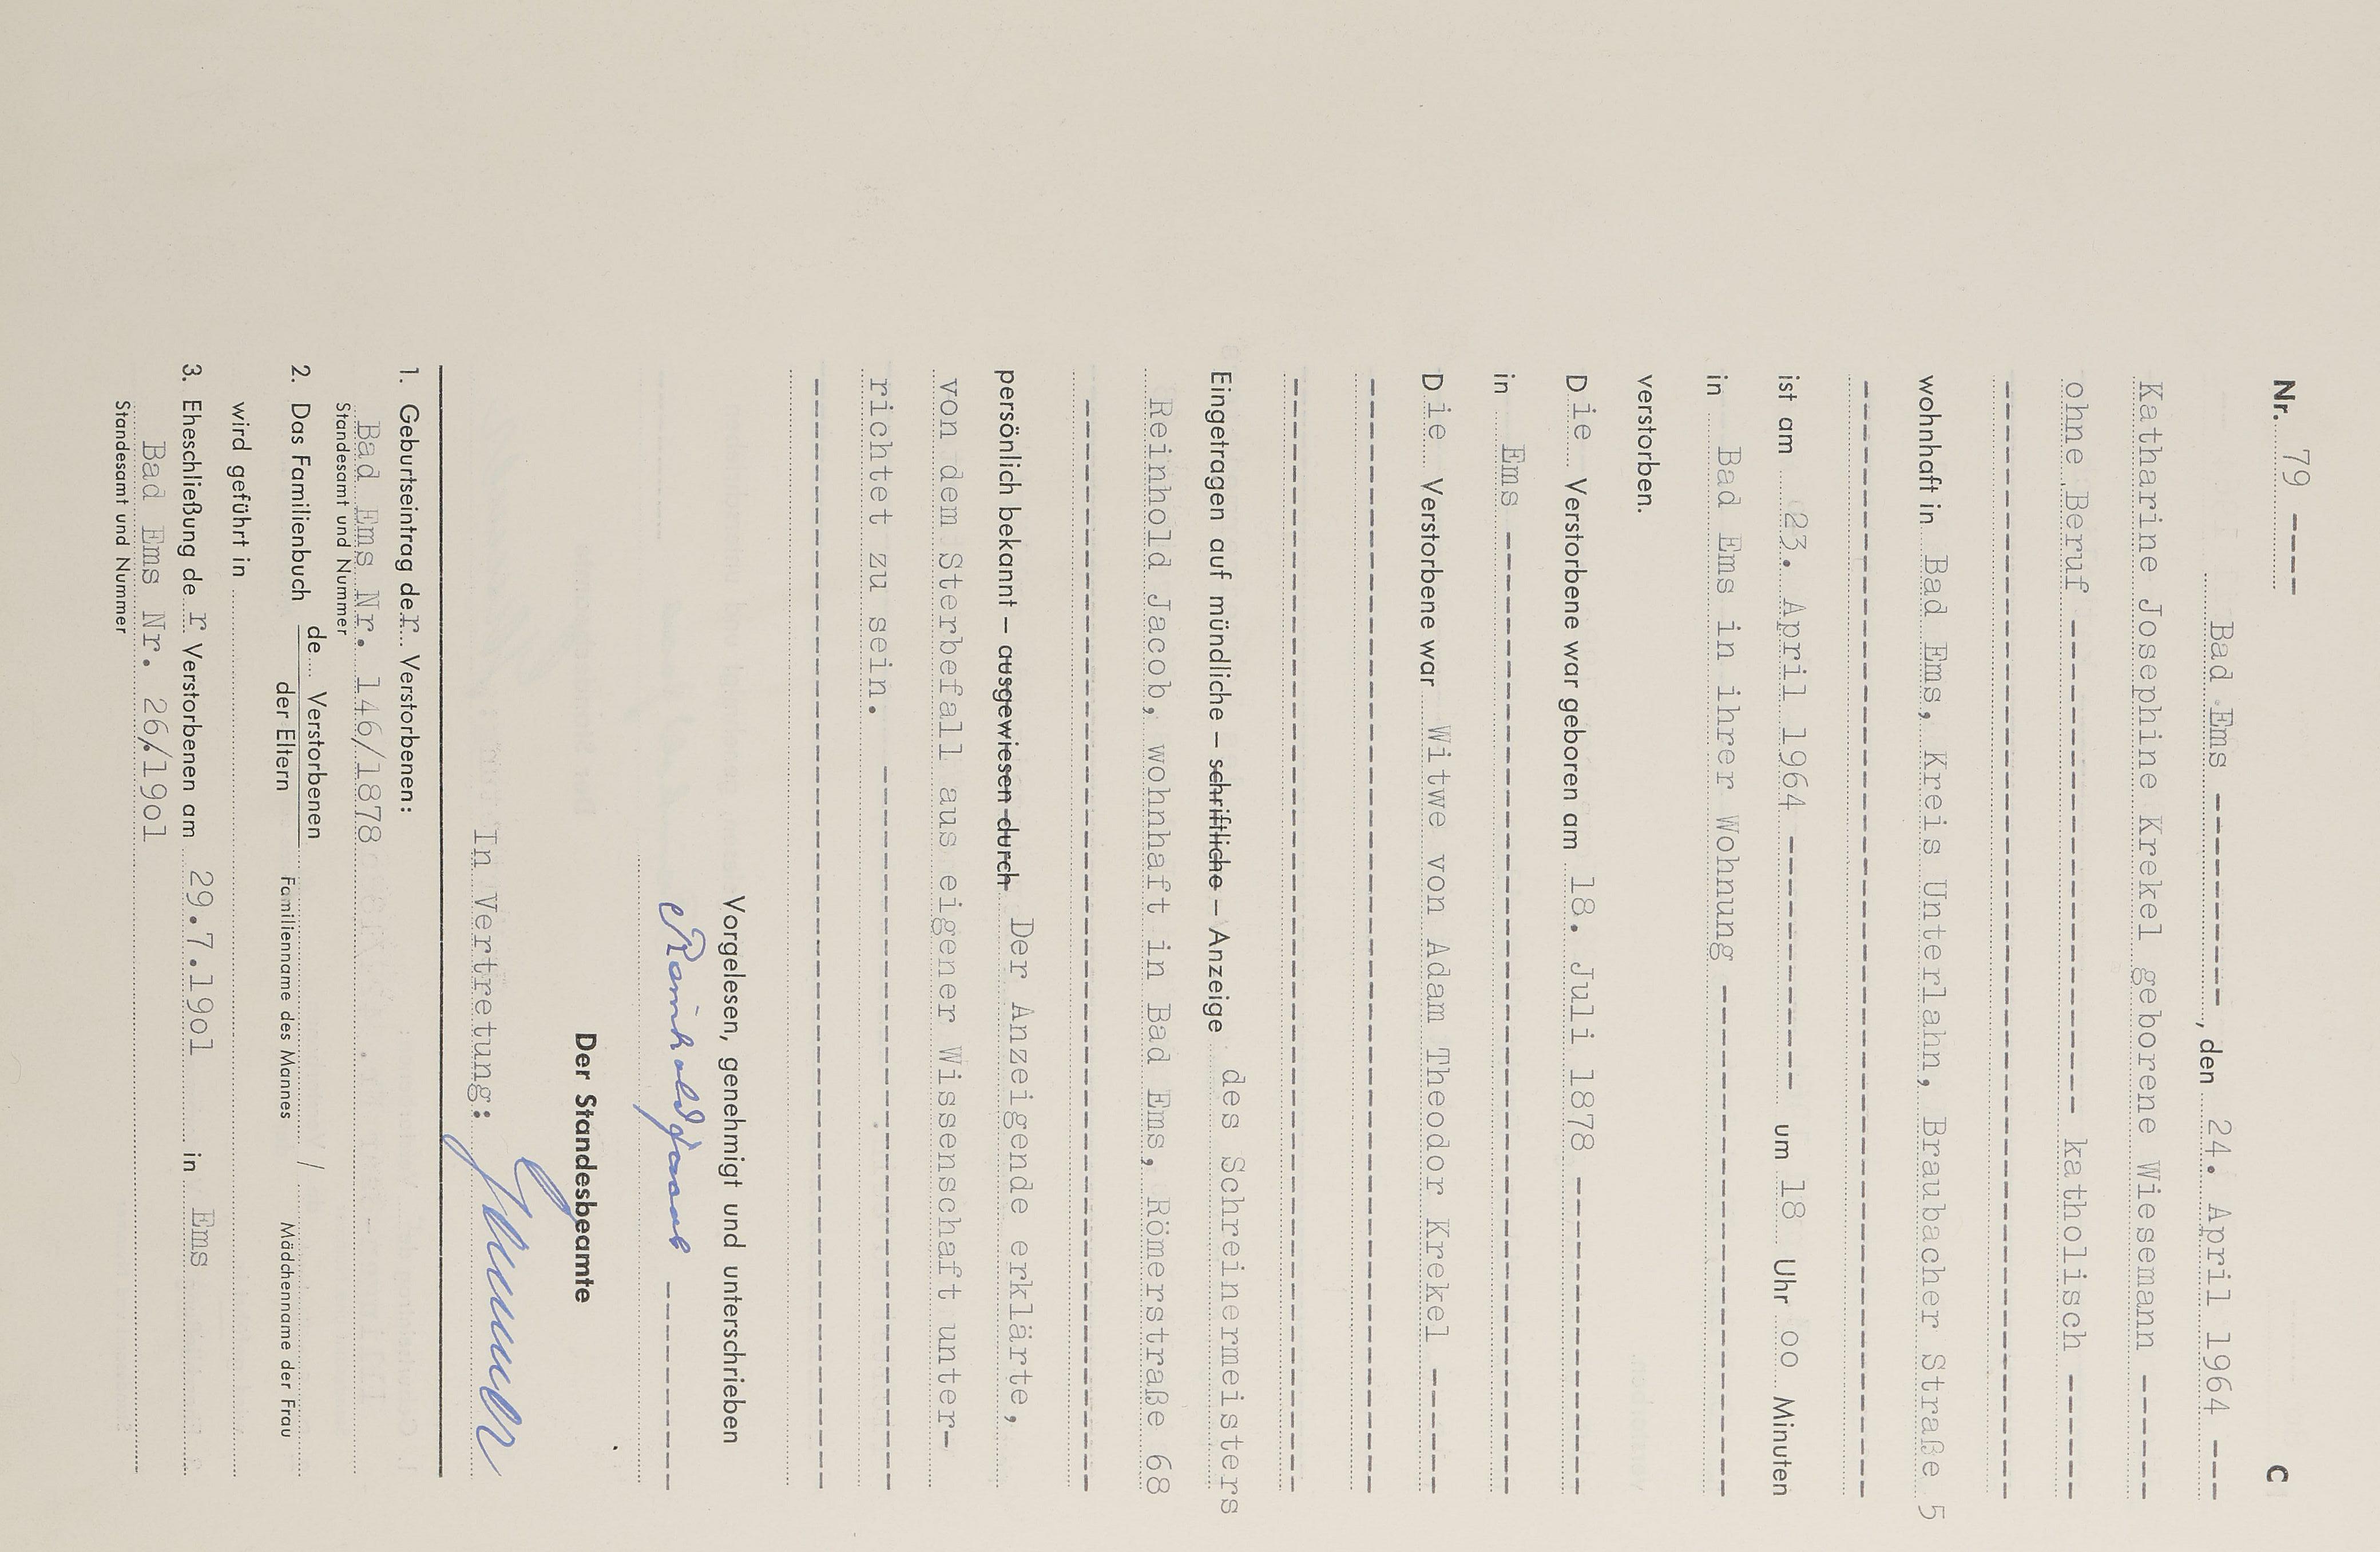 Nr. 79 ---- C
Bad Ems ----------, den 24. April 1964 ---
Katharine Josephine Krekel geborene Wiesemann ------
ohne Beruf ------------------------ katholisch ------
wohnhaft in Bad Ems, Kreis Unterlahn, Braubacher Straße 5
ist am 23. April 1964 ------------- um 18 Uhr oo Minuten
in Bad Ems in ihrer Wohnung ------------------------
verstorben.
Die Verstorbene war geboren am 18. Juli 1878 ---------------
in Ems ----------------------------------------------
Die Verstorbene war Witwe von Adam Theodor Krekel ------
Eingetragen auf mündliche – schriftliche – Anzeige des Schreinermeisters
Reinhold Jacob, wohnhaft in Bad Ems, Römerstraße 68
persönlich bekannt – ausgewiesen durch Der Anzeigende erklärte,
von dem Sterbefall aus eigener Wissenschaft unter-
richtet zu sein. -----------------------------------
Vorgelesen, genehmigt und unterschrieben
Reinhold Jacob ----------
Der Standesbeamte
In Vertretung:
1. Geburtseintrag der Verstorbenen:
Bad Ems Nr. 146/1878
Standesamt und Nummer
2. Das Familienbuch de Verstorbenen /
der Eltern Familienname des Mannes Mädchenname der Frau
wird geführt in
3. Eheschließung der Verstorbenen am 29.7.19o1 in Ems
Bad Ems Nr. 26/.19o1
Standesamt und Nummer